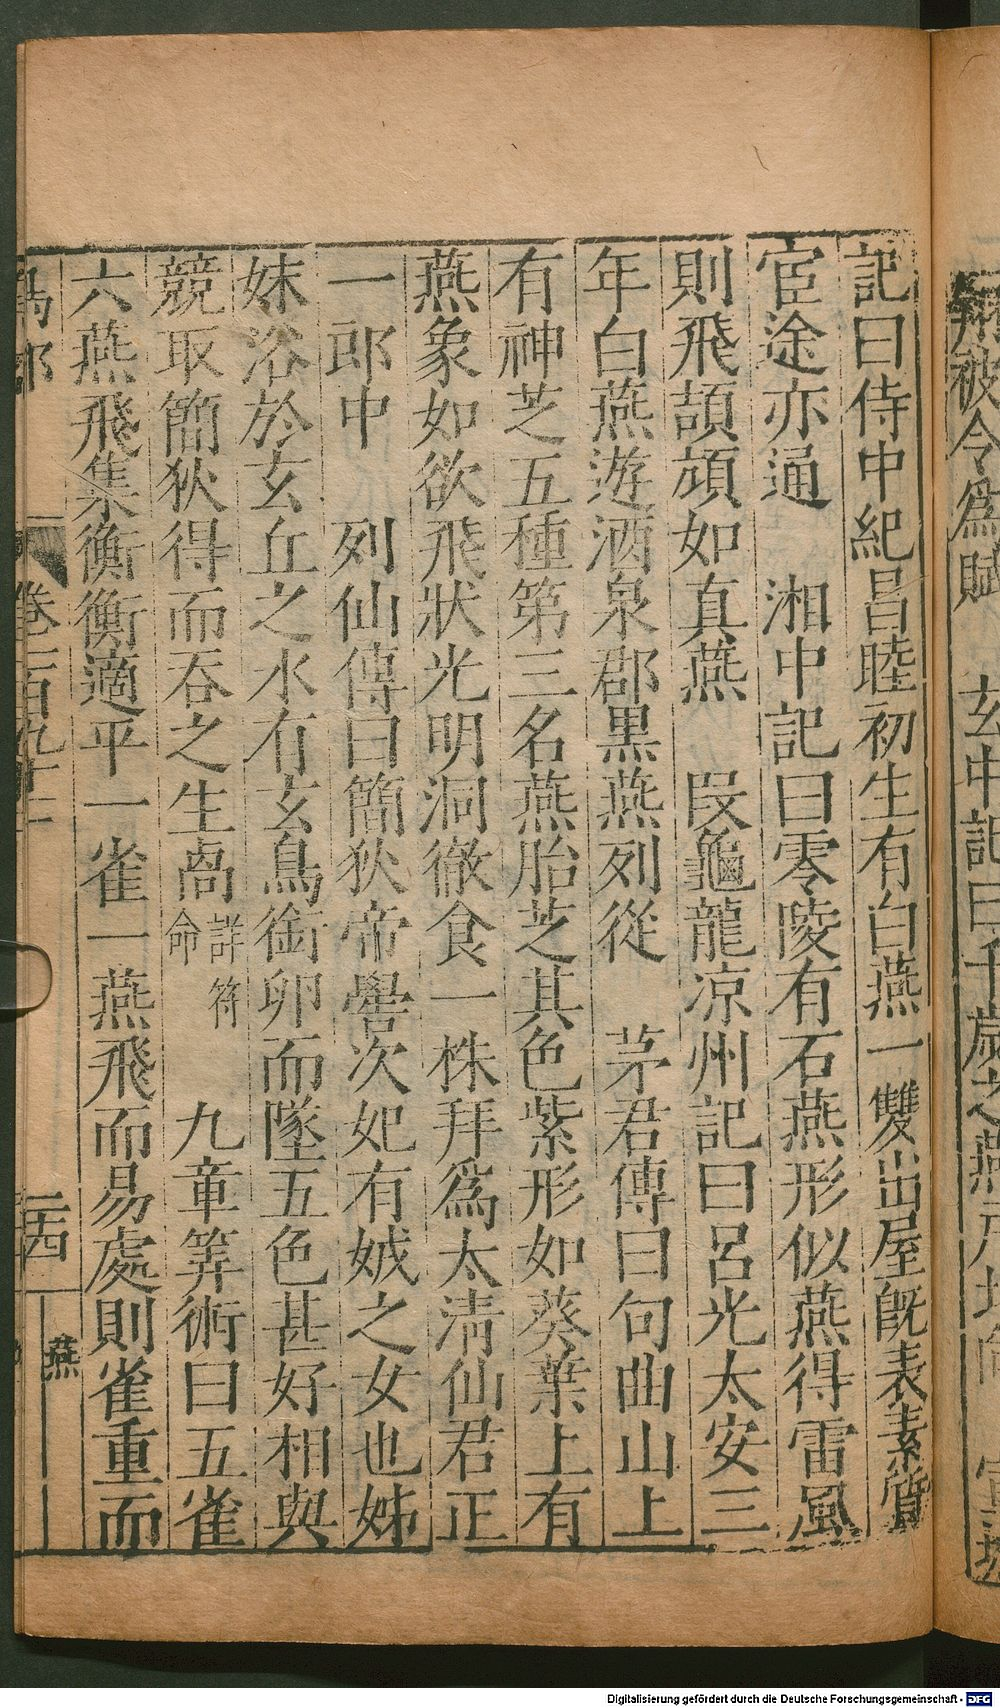 翔被令為賦　玄中記曰千歲之燕戶北向
記曰侍中紀昌睦初生有白燕一雙出屋旣表素質
宦途亦通　湘中記曰零陵有石燕形似燕得雷風
則飛頡頏如真燕　段龜龍涼州記曰呂光太安三
年白燕遊酒泉郡黑燕列從　茅君傳曰句曲山上
有神芝五種第三名燕胎芝其色紫形如葵葉上有
燕象如欲飛狀光明洞徹食一株拜爲太清仙君正
一郎中　列仙傳曰簡狄帝嚳次妃有娀之女也姊
妹浴於玄丘之水有玄鳥銜卵而墜五色甚好相與
競取簡狄得而吞之生卨詳符命　九章筭術曰五雀
六燕飛集衡衡適平一雀一燕飛而易處則雀重而
鳥部　卷二百九十二　二十四　燕
Digitalisierung gefördert durch die Deutsche Forschungsgemeinschaft - DFG